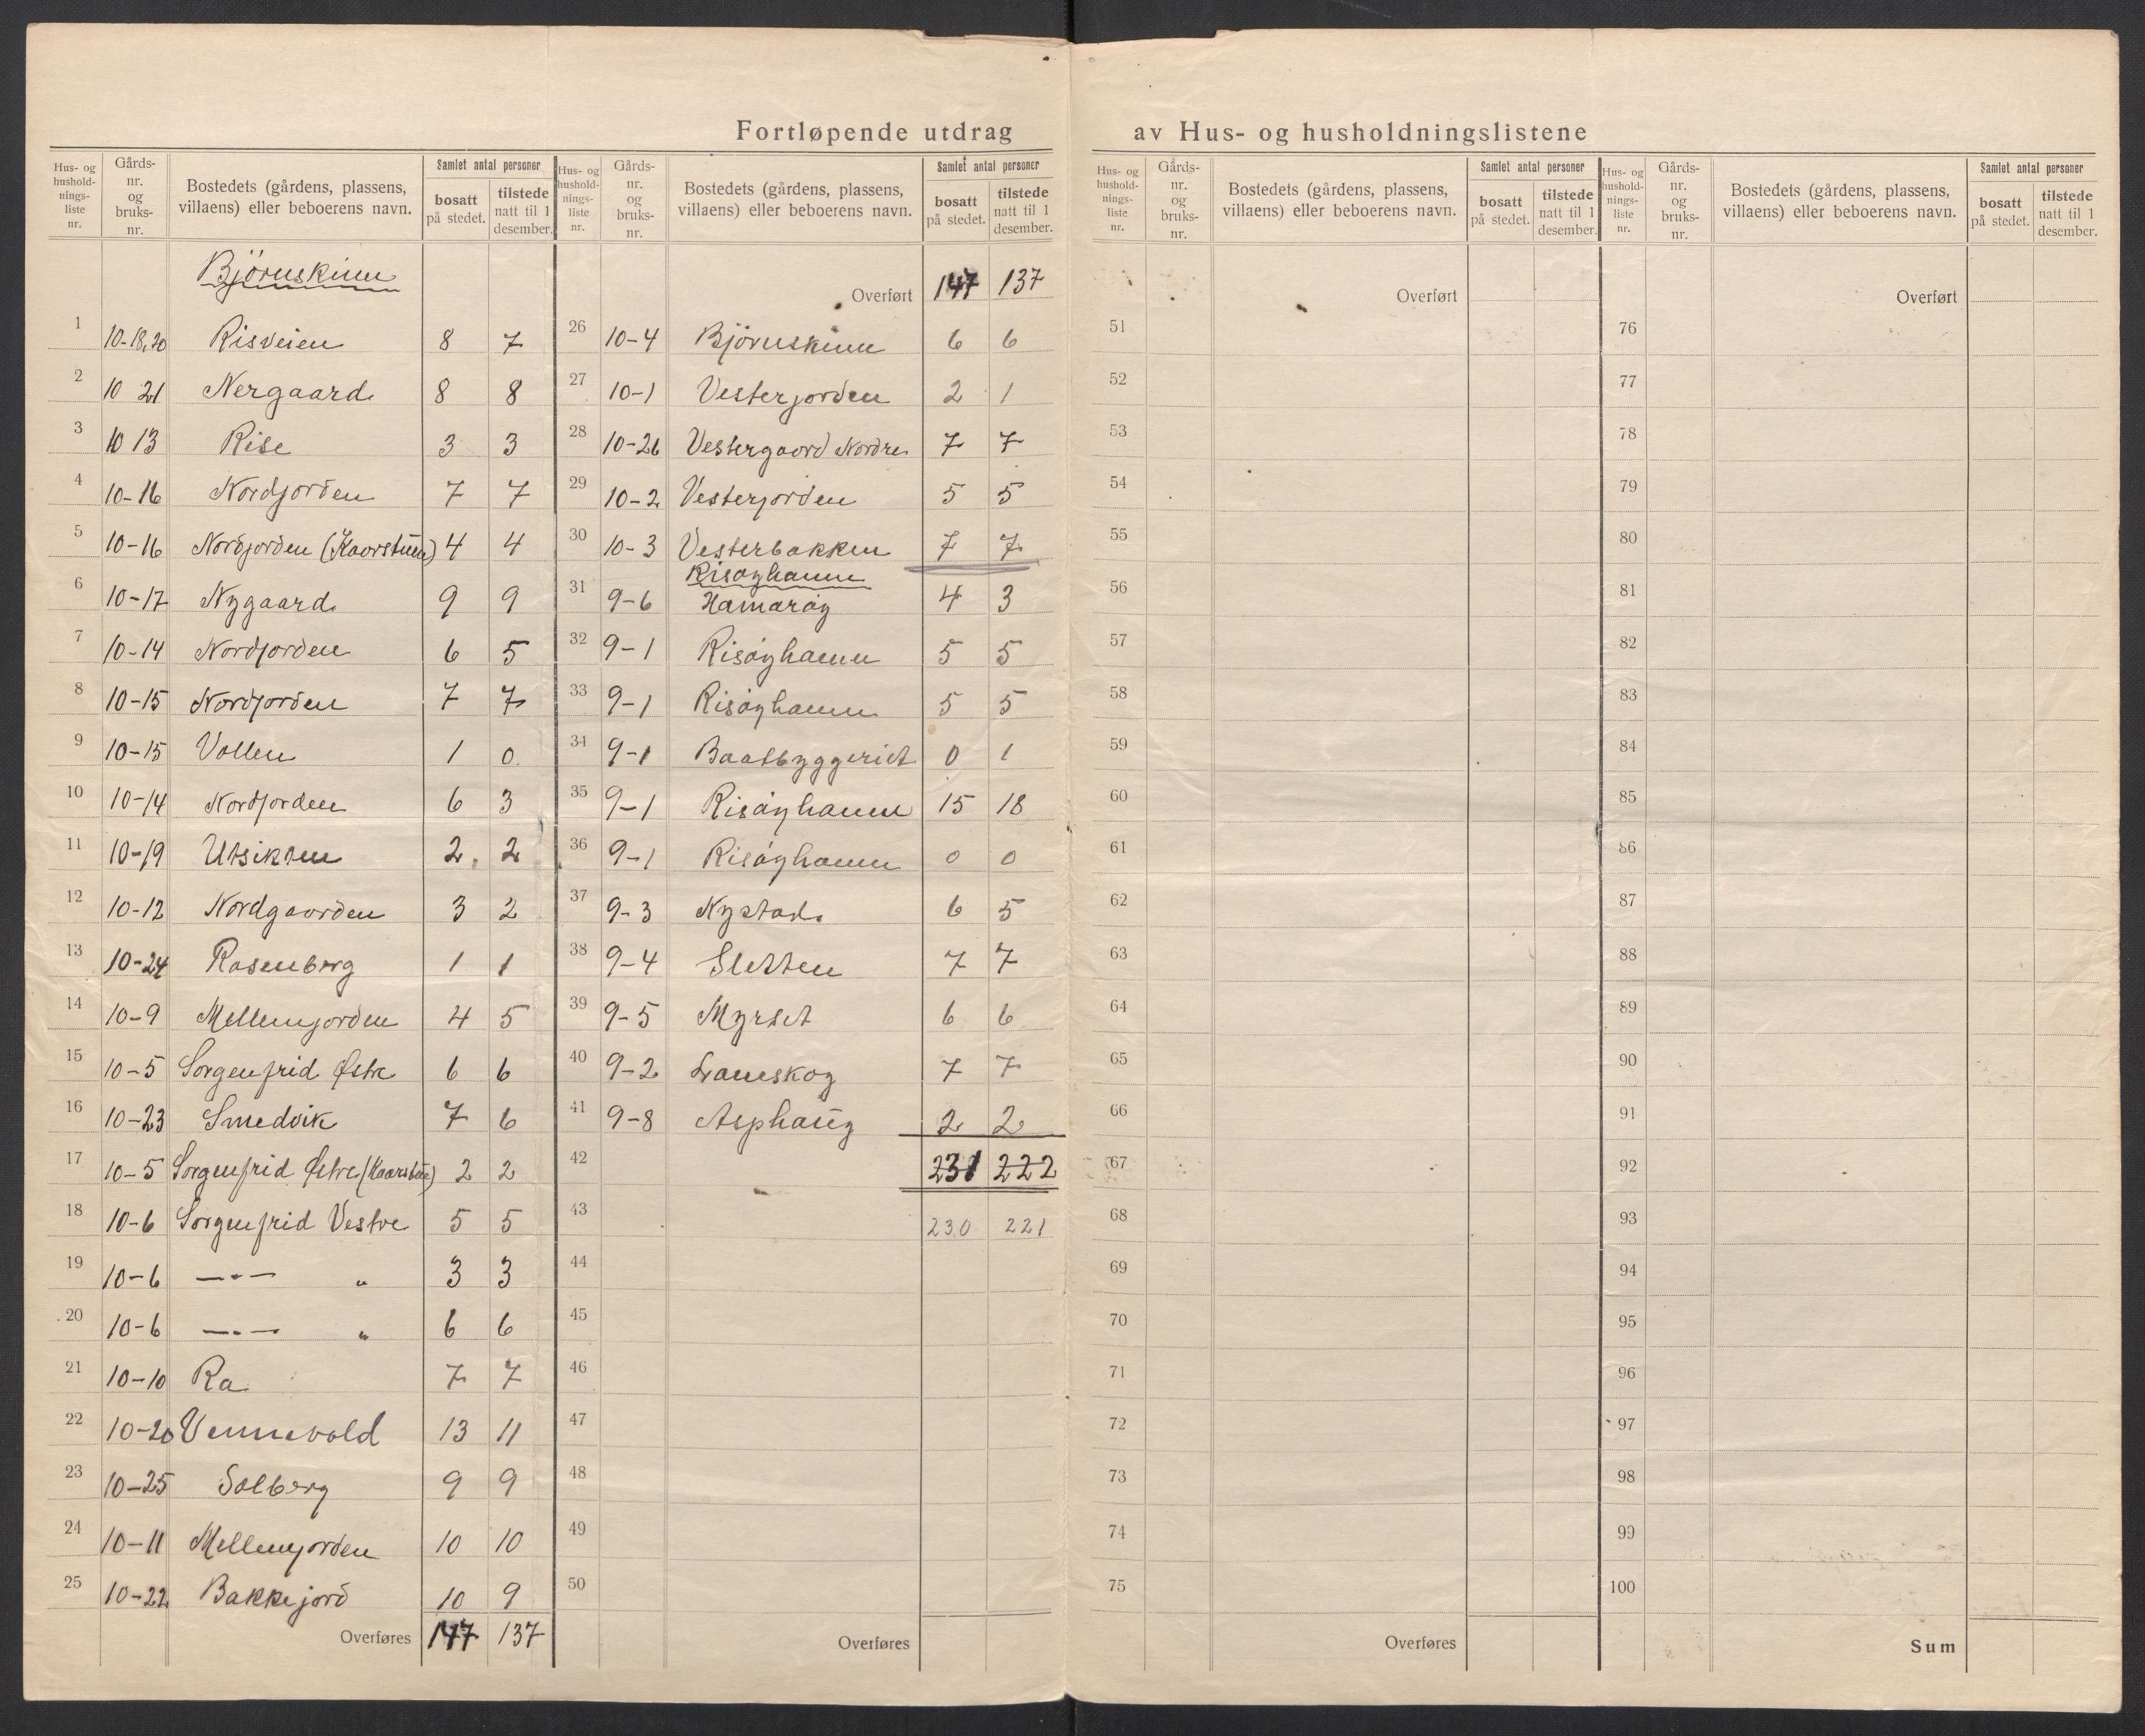 Fortløpende utdrag av Hus- og husholdningslistene
Hus- og hushold-nings-liste nr. | Gårds-nr. og bruks-nr. | Bostedets (gårdens, plassens, villaens) eller beboerens navn. | Samlet antal personer | bosatt på stedet. | tilstede natt til 1 desember.
Björnskinn
1 10-18,20 Risveien 8 7
2 10 21 Nergaard 8 8
3 10 13 Rise 3 3
4 10-16 Nordjorden 7 7
5 10-16 Nordjorden (Kaarstuen) 4 4
6 10-17 Nygaard 9 9
7 10-14 Nordjorden 6 5
8 10-15 Nordjorden 7 7
9 10-15 Vollen 1 0
10 10-14 Nordjorden 6 3
11 10-19 Utsikten 2 2
12 10-12 Nordgaarden 3 2
13 10-24 Rosenberg 1 1
14 10-9 Mellemjorden 4 5
15 10-5 Sorgenfrid Østre 6 6
16 10-23 Smedvik 7 6
17 10-5 Sorgenfrid Østre (Kaarstue) 2 2
18 10-6 Sorgenfrid Vestre 5 5
19 10-6 —"— " 3 3
20 10-6 —"— " 6 6
21 10-10 Ra 7 7
22 10-20 Vennevold 13 11
23 10-25 Solberg 9 9
24 10-11 Mellemjorden 10 10
25 10-22 Bakkejord 10 9
Overføres 147 137
Hus- og hushold-nings-liste nr. | Gårds-nr. og bruks-nr. | Bostedets (gårdens, plassens, villaens) eller beboerens navn. | Samlet antal personer | bosatt på stedet. | tilstede natt til 1 desember.
Overført 147 137
26 10-4 Björnskinn 6 6
27 10-1 Vesterjorden 2 1
28 10-26 Vestergaard Nordre 7 7
29 10-2 Vesterjorden 5 5
30 10-3 Vesterbakken 7 7
Risøyhamn
31 9-6 Hamarøy 4 3
32 9-1 Risøyhamn 5 5
33 9-1 Risøyhamn 5 5
34 9-1 Baatbyggeriet 0 1
35 9-1 Risøyhamn 15 18
36 9-1 Risøyhamn 0 0
37 9-3 Nystad 6 5
38 9-4 Sletten 7 7
39 9-5 Myrset 6 6
40 9-2 Laneskog 7 7
41 9-8 Asphaug 2 2
42 231 222
43 230 221
44
45
46
47
48
49
50
Overføres
Hus- og hushold-nings-liste nr. | Gårds-nr. og bruks-nr. | Bostedets (gårdens, plassens, villaens) eller beboerens navn. | Samlet antal personer | bosatt på stedet. | tilstede natt til 1 desember.
Overført
51
52
53
54
55
56
57
58
59
60
61
62
63
64
65
66
67
68
69
70
71
72
73
74
75
Overføres
Hus- og hushold-nings-liste nr. | Gårds-nr. og bruks-nr. | Bostedets (gårdens, plassens, villaens) eller beboerens navn. | Samlet antal personer | bosatt på stedet. | tilstede natt til 1 desember.
Overført
76
77
78
79
80
81
82
83
84
85
86
87
88
89
90
91
92
93
94
95
96
97
98
99
100
Sum